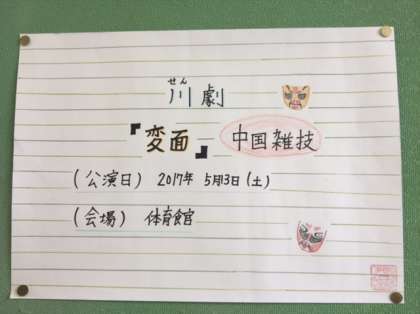 せん
川劇
『変面』 中国雑技
(公演日) 2017年 5月13日(土)
(会場) 体育館